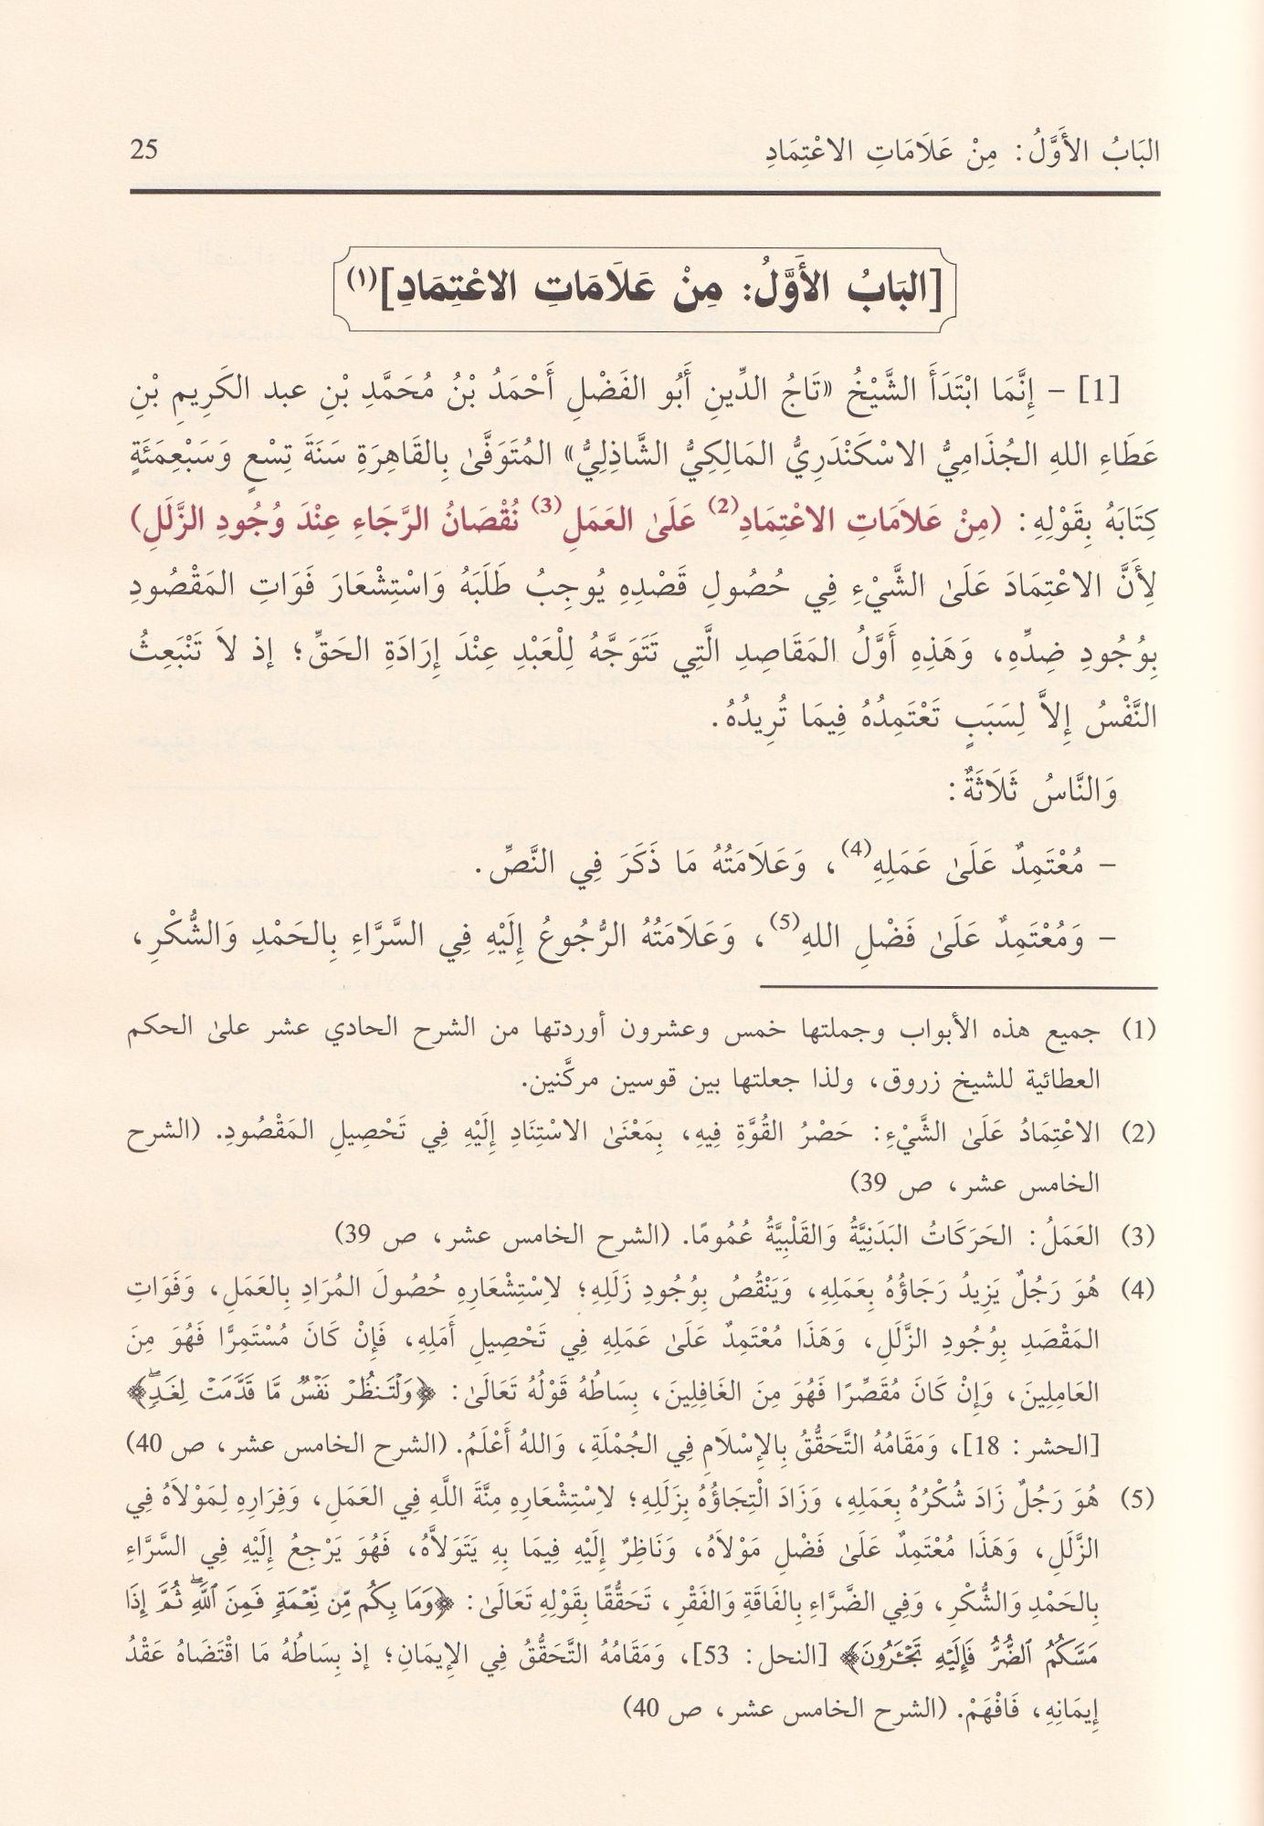 البَابُ الأَوَّلُ: مِنْ عَلَامَاتِ الاعْتِمَادِ 25
[البَابُ الأَوَّلُ: مِنْ عَلَامَاتِ الاعْتِمَادِ](١)
[1] – إِنَّمَا ابْتَدَأَ الشَّيْخُ «تَاجُ الدِّينِ أَبُو الفَضْلِ أَحْمَدُ بْنُ مُحَمَّدِ بْنِ عبد الكَرِيمِ بْنِ
عَطَاءِ اللهِ الجُذَامِيُّ الاسْكَنْدَرِيُّ المَالِكِيُّ الشَّاذِلِيُّ» المُتَوَفَّىٰ بِالقَاهِرَةِ سَنَةَ تِسْعٍ وَسَبْعِمَئَةٍ
كِتَابَهُ بِقَوْلِهِ: (مِنْ عَلاَمَاتِ الاعْتِمَادِ(2) عَلَىٰ العَمَلِ(3) نُقْصَانُ الرَّجَاءِ عِنْدَ وُجُودِ الزَّلَلِ)
لِأَنَّ الاعْتِمَادَ عَلَىٰ الشَّيْءِ فِي حُصُولِ قَصْدِهِ يُوجِبُ طَلَبَهُ وَاسْتِشْعَارَ فَوَاتِ المَقْصُودِ
بِوُجُودِ ضِدِّهِ، وَهَذِهِ أَوَّلُ المَقَاصِدِ الَّتِي تَتَوَجَّهُ لِلْعَبْدِ عِنْدَ إِرَادَةِ الحَقِّ؛ إذ لاَ تَنْبَعِثُ
النَّفْسُ إِلاَّ لِسَبَبٍ تَعْتَمِدُهُ فِيمَا تُرِيدُهُ.
وَالنَّاسُ ثَلَاثَةٌ:
– مُعْتَمِدٌ عَلَىٰ عَمَلِهِ(4)، وَعَلَامَتُهُ مَا ذَكَرَ فِي النَّصِّ.
– وَمُعْتَمِدٌ عَلَىٰ فَضْلِ اللهِ(5)، وَعَلَامَتُهُ الرُّجُوعُ إِلَيْهِ فِي السَّرَّاءِ بِالحَمْدِ وَالشُّكْرِ،
(1) جميع هذه الأبواب وجملتها خمس وعشرون أوردتها من الشرح الحادي عشر علىٰ الحكم
العطائية للشيخ زروق، ولذا جعلتها بين قوسين مركَّنين.
(2) الاعْتِمَادُ عَلَىٰ الشَّيْءِ: حَصْرُ القُوَّةِ فِيهِ، بِمَعْنَىٰ الاسْتِنَادِ إِلَيْهِ فِي تَحْصِيلِ المَقْصُودِ. (الشرح
الخامس عشر، ص 39)
(3) العَمَلُ: الحَرَكَاتُ البَدَنِيَّةُ وَالقَلْبِيَّةُ عُمُومًا. (الشرح الخامس عشر، ص 39)
(4) هُوَ رَجُلٌ يَزِيدُ رَجَاؤُهُ بِعَمَلِهِ، وَيَنْقُصُ بِوُجُودِ زَلَلِهِ؛ لاِسْتِشْعَارِهِ حُصُولَ المُرَادِ بِالعَمَلِ، وَفَوَاتِ
المَقْصَدِ بِوُجُودِ الزَّلَلِ، وَهَذَا مُعْتَمِدٌ عَلَىٰ عَمَلِهِ فِي تَحْصِيلِ أَمَلِهِ، فَإِنْ كَانَ مُسْتَمِرًّا فَهُوَ مِنَ
العَامِلِينَ، وَإِنْ كَانَ مُقَصِّرًا فَهُوَ مِنَ الغَافِلِينَ، بِسَاطُهُ قَوْلُهُ تَعَالَىٰ: ﴿وَلْتَنظُرْ نَفْسٌ مَّا قَدَّمَتْ لِغَدٍۖ﴾
[الحشر: 18]، وَمَقَامُهُ التَّحَقُّقُ بِالإِسْلَامِ فِي الجُمْلَةِ، وَاللهُ أَعْلَمُ. (الشرح الخامس عشر، ص 40)
(5) هُوَ رَجُلٌ زَادَ شُكْرُهُ بِعَمَلِهِ، وَزَادَ الْتِجَاؤُهُ بِزَلَلِهِ؛ لاِسْتِشْعَارِهِ مِنَّةَ اللَّهِ فِي العَمَلِ، وَفِرَارِهِ لِمَوْلاَهُ فِي
الزَّلَلِ، وَهَذَا مُعْتَمِدٌ عَلَىٰ فَضْلِ مَوْلاَهُ، وَنَاظِرٌ إِلَيْهِ فِيمَا بِهِ يَتَوَلاَّهُ، فَهُوَ يَرْجِعُ إِلَيْهِ فِي السَّرَّاءِ
بِالحَمْدِ وَالشُّكْرِ، وَفِي الضَّرَّاءِ بِالفَاقَةِ وَالفَقْرِ، تَحَقُّقًا بِقَوْلِهِ تَعَالَىٰ: ﴿وَمَا بِكُم مِّن نِّعْمَةٍ فَمِنَ ٱللَّهِۖ ثُمَّ إِذَا
مَسَّكُمُ ٱلضُّرُّ فَإِلَيْهِ تَجْـَٔرُونَ﴾ [النحل: 53]، وَمَقَامُهُ التَّحَقُّقُ فِي الإِيمَانِ؛ إذ بِسَاطُهُ مَا اقْتَضَاهُ عَقْدُ
إِيمَانِهِ، فَافْهَمْ. (الشرح الخامس عشر، ص 40)